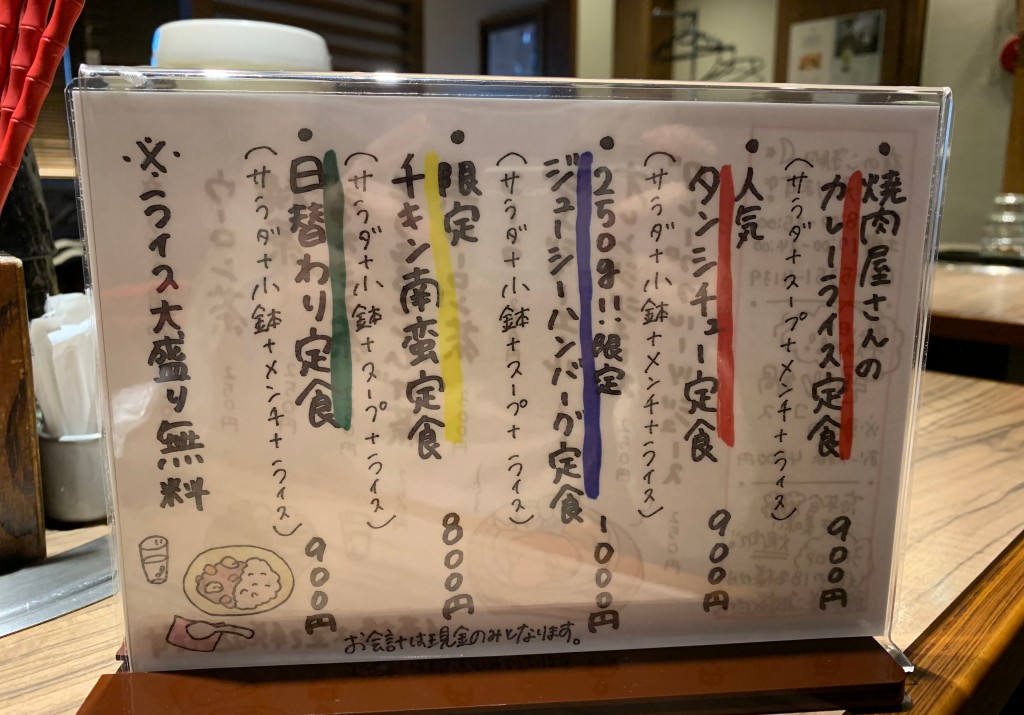 ・焼肉屋さんの
カレーライス定食 900円
(サラダ+スープ+メンチ+ライス)
・人気
タンシチュー定食 900円
(サラダ+小鉢+メンチ+ライス)
・250g!!限定
ジューシーハンバーグ定食 1000円
(サラダ+小鉢+スープ+ライス)
・限定
チキン南蛮定食 800円
(サラダ+小鉢+スープ+ライス)
・日替わり定食 900円
(サラダ+小鉢+メンチ+ライス)
※ライス大盛り無料
お会計は現金のみとなります。